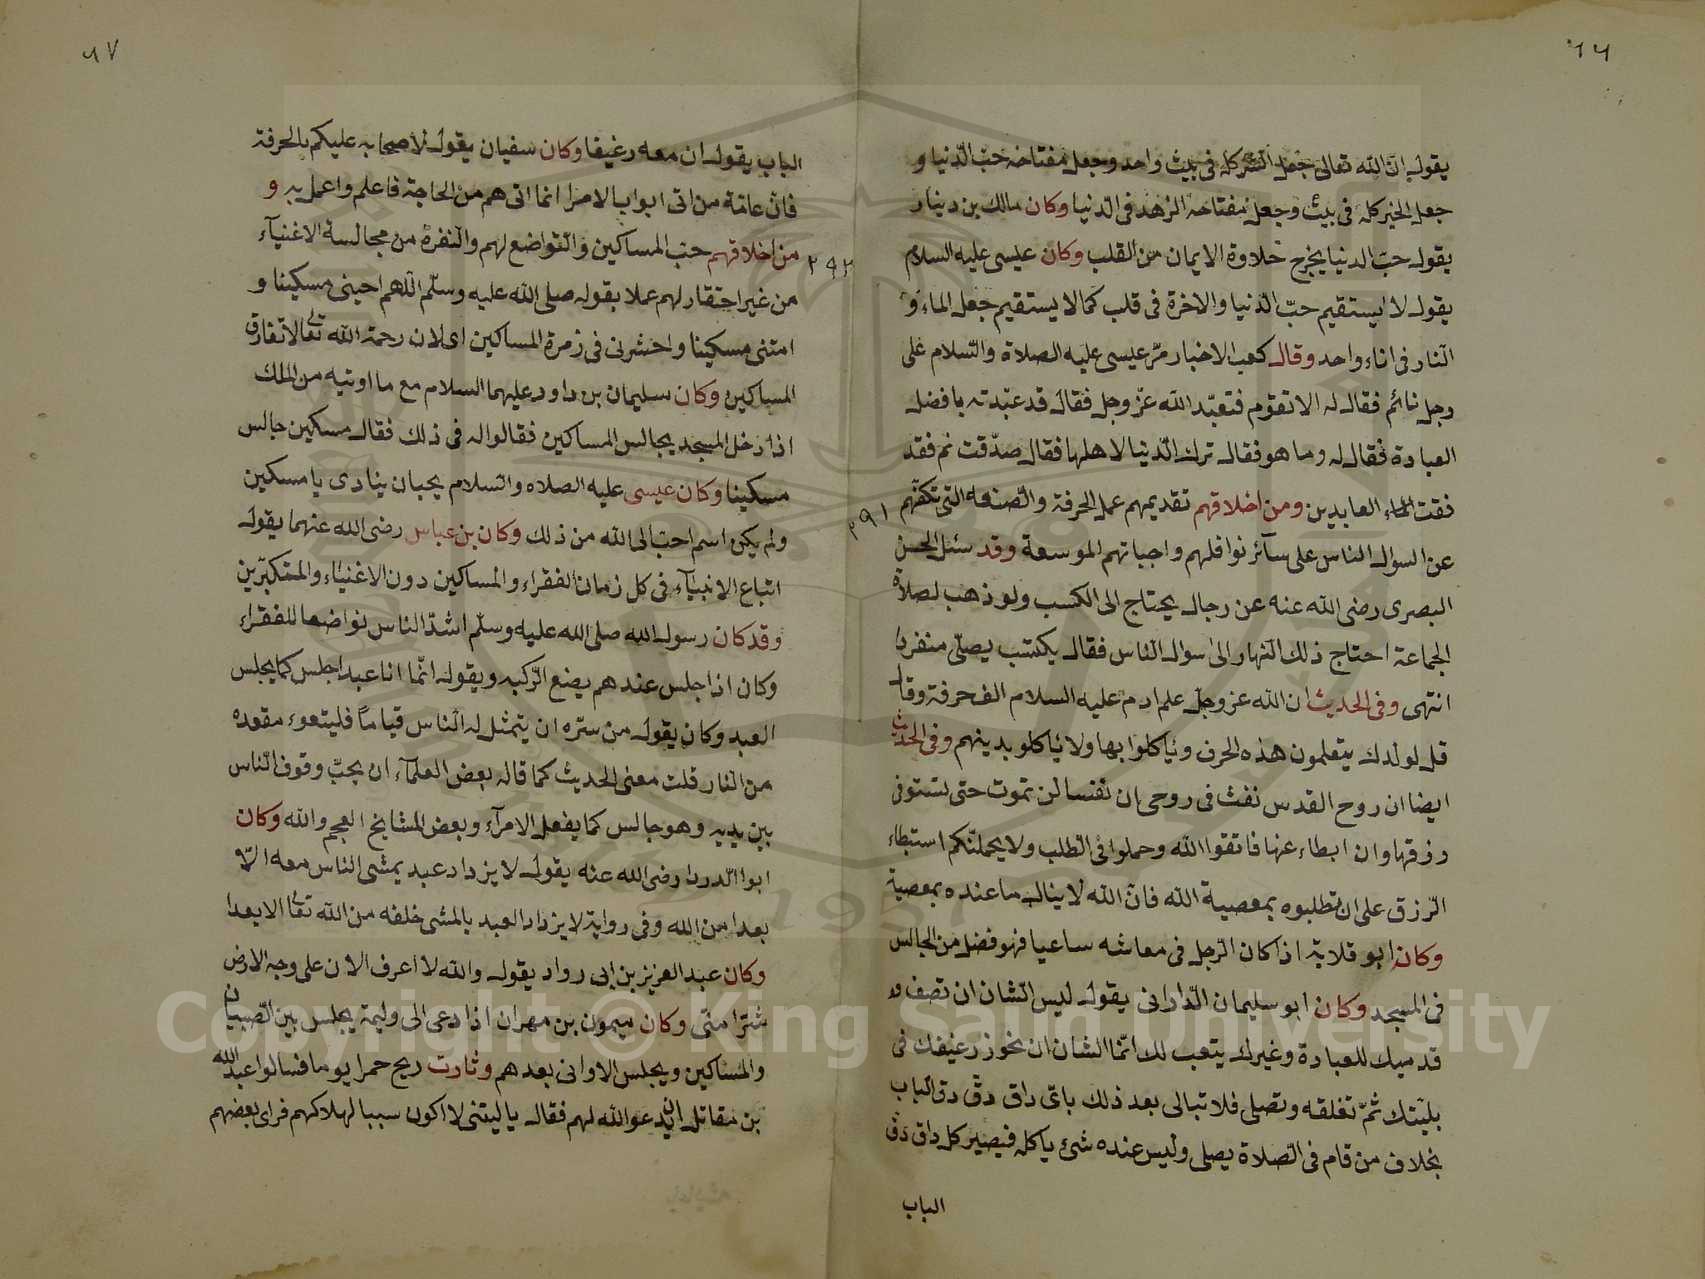 ٦٦
يقول ان الله تعالى جعل الشر كله فى بيت واحد وجعل مفتاحه حبّ الدّنيا و
جعل الخير كله فى بيت وجعل مفتاحه الزهد فى الدنيا وكان مالك بن دينار
يقول حبّ الدنيا يخرج حلاوة الايمان من القلب وكان عيسى عليه السلام
يقول لا يستقيم حبّ الدّنيا والاخرة فى قلب كما لا يستقيم جعل الماء و
النار فى اناء واحد وقال كعب الاخبار مرّ عيسى عليه الصلاة والسلام على
رجل نائم فقال له الا تقوم فتعبّد الله عزّ وجل فقال قد عبّدته بافضل
العبادة فقال له وما هو فقال ترك الدّنيا لاهلها فقال صدّقت نم فقد
فقت العابدين ومن اخلاقهم تقديمهم عمل الحرفة والصنعه التى تكفّهم
٣٩١
عن السوال الناس على سآئر نوافلهم واجباتهم الموسعة وقد سئل الحسن
البصرى رضى الله عنه عن رجال يحتاج الى الكسب ولو ذهب لصلاة
الجماعة احتاج ذلك النهار الى سوال الناس فقال يكتسب يصلّى منفردا
انتهى وفى الحديث ان الله عز وجلّ علم ادم عليه السلام الف حرفة وقال
قل لولدك يتعلمون هذه الحرف وياكلوا بها ولا ياكلو بدينهم وفى الحديث
ايضا ان روح القدس نفث فى روحى ان نفسا لن تموت حتى تستوفى
رزقها وان ابطاء عنها فاتقوا الله وحملوا فى الطلب ولا يحملنّكم استبطاء
الرزق على ان تطلبوه بمعصية الله فانّ الله لا ينال ما عنده بمعصية
وكان ابو قلابة اذا كان الرّجل فى معاشه ساعيا فهو فضل من الجالس
فى المسجد وكان ابو سليمان الدّارانى يقول ليس الشان ان تصف
قدميك للعبادة وغيرك يتعب لك انّما الشان ان تحوز رغيفك فى
بليتك ثمّ تغلقه وتصلى فلا تبالى بعد ذلك باىّ داق دقّ دق الباب
بخلاف من قام فى الصّلاة يصلى وليس عنده شئ ياكله فيصير كل داق دق
الباب
٦٧
الباب يقول ان معه رغيفا وكان سفيان يقول لاصحابه عليكم بالحرفة
فان عامّة من اتى ابواب الامرا انما اتى هم من الحاجة فاعلم واعمل به و
من اخلاقهم حبّ المساكين والتواضع لهم والنفرة من مجالسة الاغنيآء
٢٩٢
من غير احتقار لهم عملا بقوله صلى الله عليه وسلّم اللّهم احينى مسكينا و
امتنى مسكينا واحشرنى فى زمرة المساكين اى لان رحمة الله تعالى لا تفارق
المساكين وكان سليمان بن داود عليهما السلام مع ما اوتيه من الملك
اذا دخل المسجد يجالس المساكين فقالوا له فى ذلك فقال مسكين جالس
مسكينا وكان عيسى عليه الصلاه والسلام يحبان ينادى يا مسكين
ولم يكن اسم احبّ الى الله من ذلك وكان بن عباس رضى الله عنهما يقول
اتباع الانبيآء فى كل زمان الفقراء والمساكين دون الاغنياء والمتكبّرين
وقد كان رسول الله صلى الله عليه وسلّم اشدّ الناس تواضعا للفقراء
وكان اذا جلس عندهم يضع الرّكبه ويقول انّما انا عبد اجلس كما يجلس
العبد وكان يقول من سرّه ان يتمثل له الناس قياماً فليتبوء مقعده
من النار قلت معنى الحديث كما قاله بعض العلمآء ان يحبّ وقوف النّاس
بين يديه وهو جالس كما يفعل الامرآء وبعض المشايخ العجم والله وكان
ابوا الدردا رضى الله عنه يقول لا يزداد عبد يمشى الناس معه الّا
بعدا من الله وفى رواية لا يزداد العبد بالمشى خلفه من الله تعالى الا بعدا
وكان عبد العزيز بن ابى رواد يقول والله لا اعرف الان على وجه الارض
شرّا منّى وكان ميمون بن مهران اذا دعى الى وليمة يجلس بين الصّبيان
والمساكين ويجلس الاوانى بعدهم وثارت ريح حمرا يوما فسالوا عبد الله
بن مقاتل ان يدعو الله لهم فقال يا ليتنى لا اكون سببا لهلاكهم فراى بعضهم
Copyright © King Saud University
1957